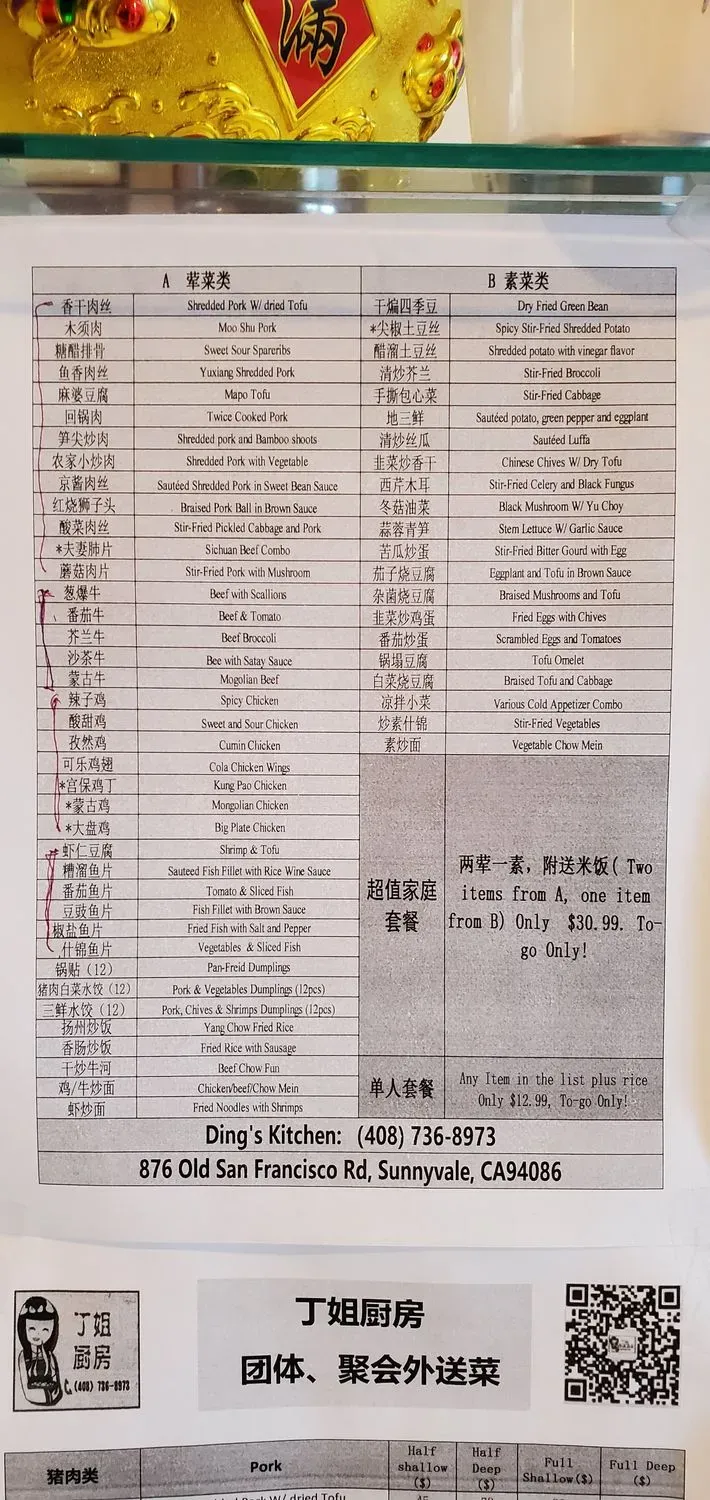 俩
A 荤菜类 B 素菜类
香干肉丝 Shredded Pork W/ dried Tofu 干煸四季豆 Dry Fried Green Bean
木须肉 Moo Shu Pork *尖椒土豆丝 Spicy Stir-Fried Shredded Potato
糖醋排骨 Sweet Sour Spareribs 醋溜土豆丝 Shredded potato with vinegar flavor
鱼香肉丝 Yuxiang Shredded Pork 清炒芥兰 Stir-Fried Broccoli
麻婆豆腐 Mapo Tofu 手撕包心菜 Stir-Fried Cabbage
回锅肉 Twice Cooked Pork 地三鲜 Sautéed potato, green pepper and eggplant
笋尖炒肉 Shredded pork and Bamboo shoots 清炒丝瓜 Sautéed Luffa
农家小炒肉 Shredded Pork with Vegetable 韭菜炒香干 Chinese Chives W/ Dry Tofu
京酱肉丝 Sautéed Shredded Pork in Sweet Bean Sauce 西芹木耳 Stir-Fried Celery and Black Fungus
红烧狮子头 Braised Pork Ball in Brown Sauce 冬菇油菜 Black Mushroom W/ Yu Choy
酸菜肉丝 Stir-Fried Pickled Cabbage and Pork 蒜蓉青笋 Stem Lettuce W/ Garlic Sauce
*夫妻肺片 Sichuan Beef Combo 苦瓜炒蛋 Stir-Fried Bitter Gourd with Egg
蘑菇肉片 Stir-Fried Pork with Mushroom 茄子烧豆腐 Eggplant and Tofu in Brown Sauce
葱爆牛 Beef with Scallions 杂菌烧豆腐 Braised Mushrooms and Tofu
番茄牛 Beef & Tomato 韭菜炒鸡蛋 Fried Eggs with Chives
芥兰牛 Beef Broccoli 番茄炒蛋 Scrambled Eggs and Tomatoes
沙茶牛 Bee with Satay Sauce 锅塌豆腐 Tofu Omelet
蒙古牛 Mogolian Beef 白菜烧豆腐 Braised Tofu and Cabbage
辣子鸡 Spicy Chicken 凉拌小菜 Various Cold Appetizer Combo
酸甜鸡 Sweet and Sour Chicken 炒素什锦 Stir-Fried Vegetables
孜然鸡 Cumin Chicken 素炒面 Vegetable Chow Mein
可乐鸡翅 Cola Chicken Wings
*宫保鸡丁 Kung Pao Chicken
*蒙古鸡 Mongolian Chicken
*大盘鸡 Big Plate Chicken
虾仁豆腐 Shrimp & Tofu
糟溜鱼片 Sauteed Fish Fillet with Rice Wine Sauce
番茄鱼片 Tomato & Sliced Fish
豆豉鱼片 Fish Fillet with Brown Sauce
椒盐鱼片 Fried Fish with Salt and Pepper
什锦鱼片 Vegetables & Sliced Fish
锅贴（12） Pan-Freid Dumplings
猪肉白菜水饺（12） Pork & Vegetables Dumplings (12pcs)
三鲜水饺（12） Pork, Chives & Shrimps Dumplings (12pcs)
扬州炒饭 Yang Chow Fried Rice
香肠炒饭 Fried Rice with Sausage
干炒牛河 Beef Chow Fun
鸡/牛炒面 Chicken/beef/Chow Mein
虾炒面 Fried Noodles with Shrimps
超值家庭
套餐
两荤一素，附送米饭( Two
items from A, one item
from B) Only $30.99. To-
go Only!
单人套餐
Any Item in the list plus rice
Only $12.99, To-go Only!
Ding's Kitchen: (408) 736-8973
876 Old San Francisco Rd, Sunnyvale, CA94086
丁姐
厨房
(408) 736-8973
丁姐厨房
团体、聚会外送菜
猪肉类 Pork Half shallow ($) Half Deep ($) Full Shallow($) Full Deep ($)